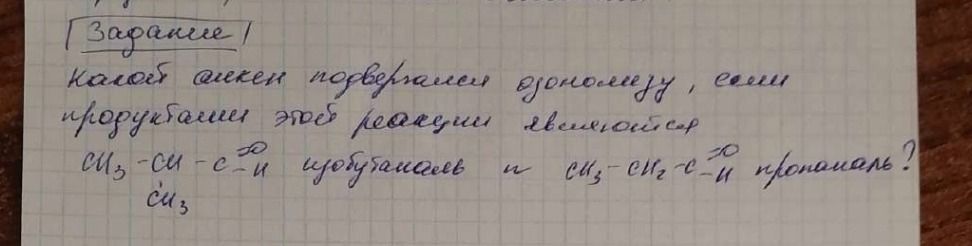 Задание
Какой алкен подвергался озонолизу, если
продуктами этой реакции являются
CH3 - CH - C =O - H изобутаналь и CH3 - CH2 - C =O - H пропаналь?
CH3